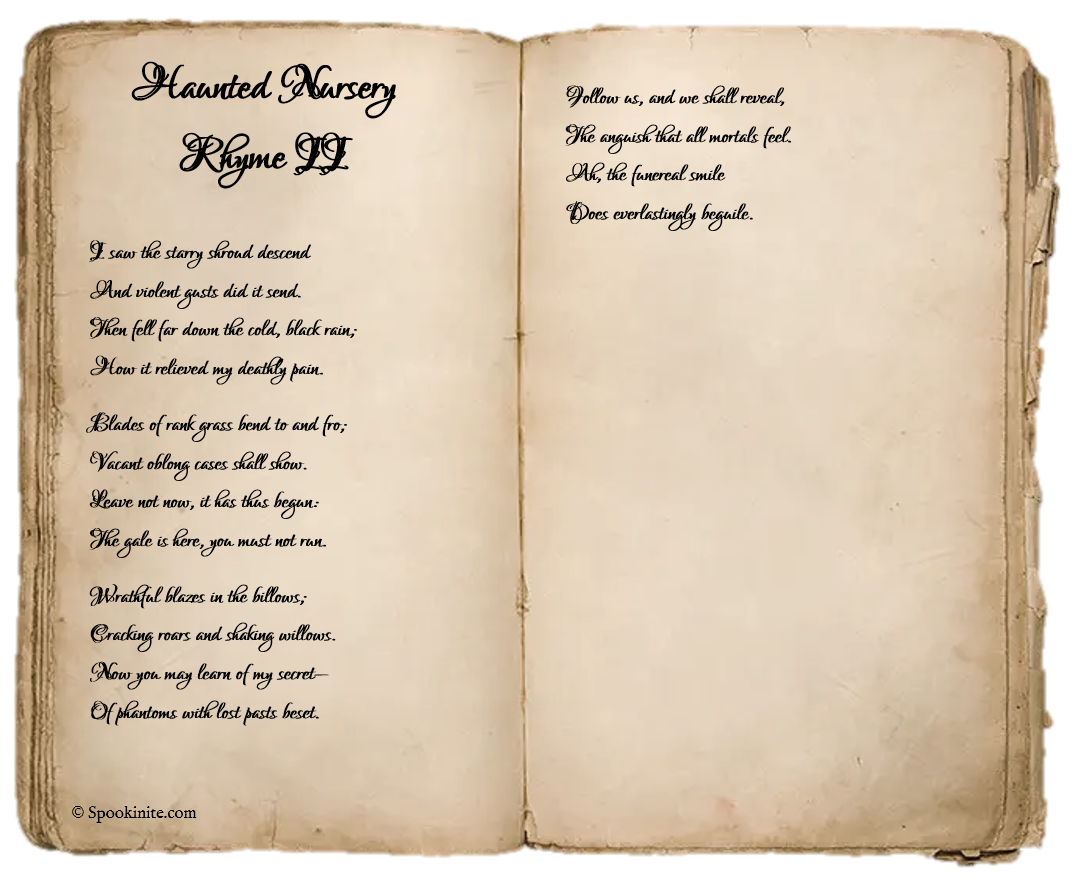 Haunted Nursery
Rhyme II
I saw the starry shroud descend
And violent gusts did it send.
Then fell far down the cold, black rain;
How it relieved my deathly pain.
Blades of rank grass bend to and fro;
Vacant oblong cases shall show.
Leave not now, it has thus begun:
The gale is here, you must not run.
Wrathful blazes in the billows;
Cracking roars and shaking willows.
Now you may learn of my secret—
Of phantoms with lost pasts beset.
© Spookinite.com
Follow us, and we shall reveal,
The anguish that all mortals feel.
Ah, the funereal smile
Does everlastingly beguile.